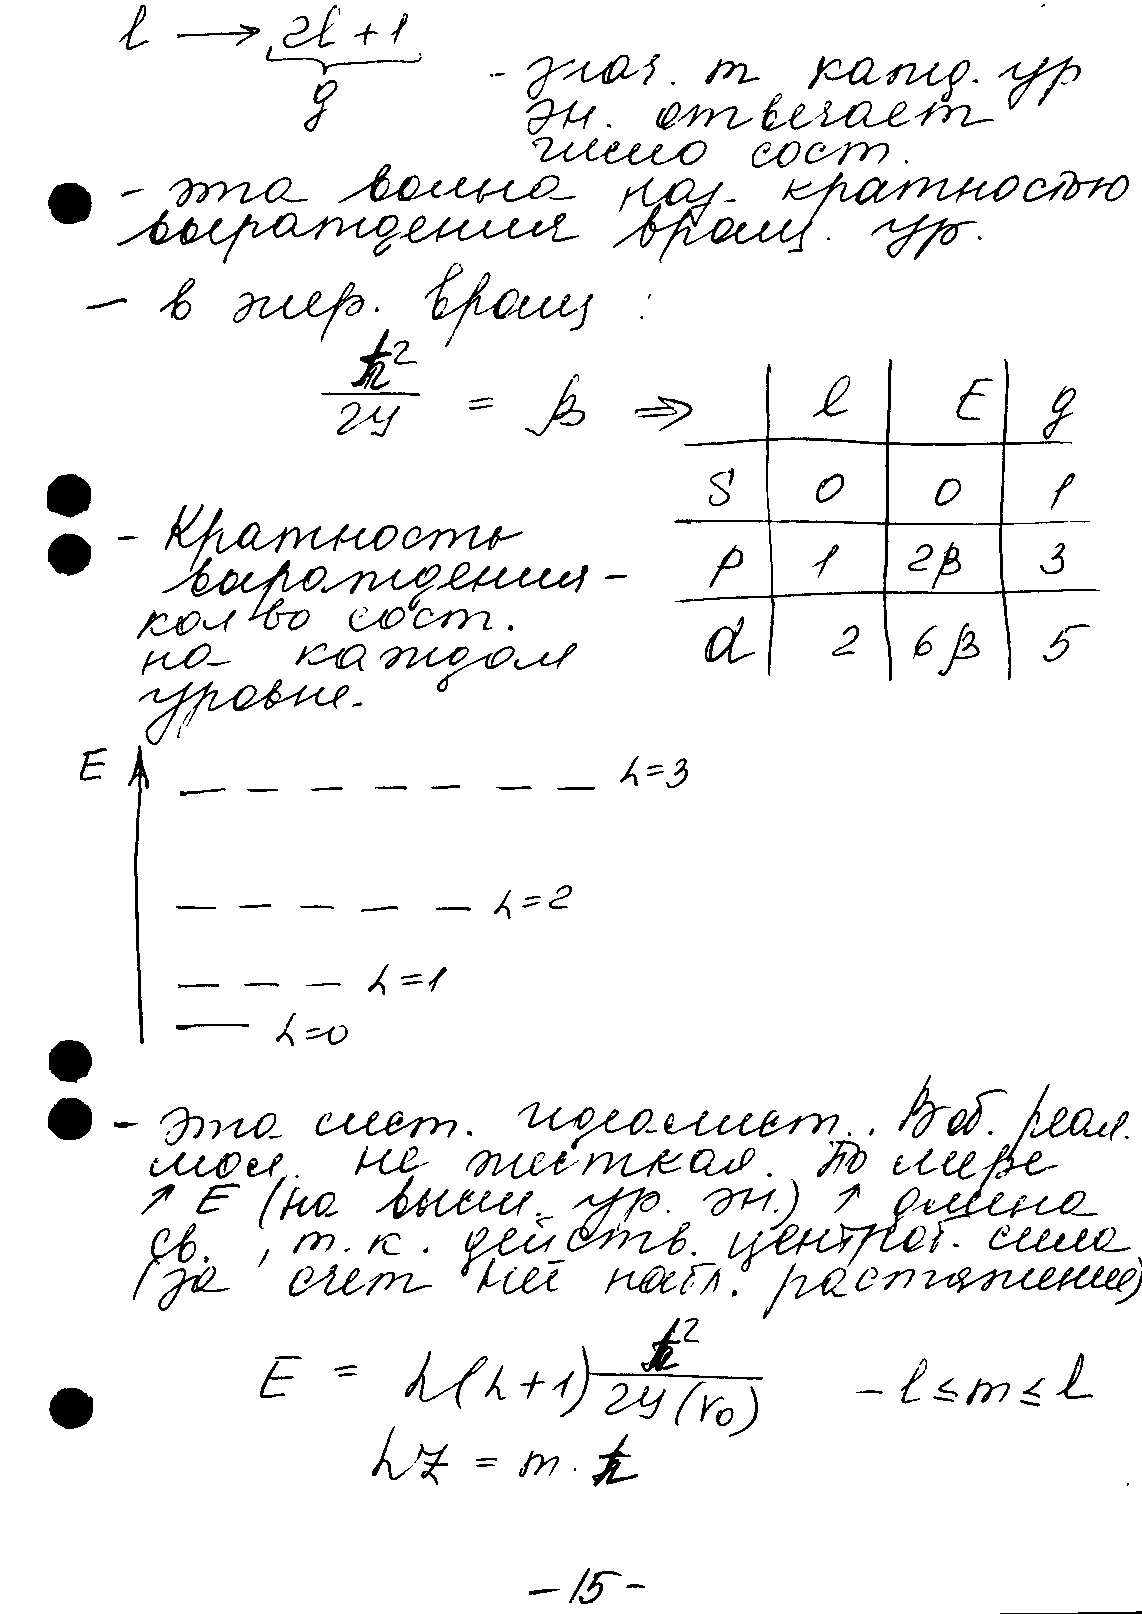 l → 2l + 1
g
- знач. m кажд. ур
эн. отвечает
число сост.
- эта волна наз. кратностью
вырождения вращ. ур.
- в жер. вращ :
ħ²/2Y = β ⇒
l E g
S 0 0 1
p 1 2β 3
d 2 6β 5
- Кратность
вырождения -
кол-во сост.
на каждом
уровне.
E
L=3
L=2
L=1
L=0
- эта сист. идеалист. . Воб. реал.
мол. не жесткая. По мере
↑ E (на высш. ур. эн.) ↑ длина
св. , т. к. действ. центроб. сила
(за счет неё набл. растяжение)
E = L(L+1) ħ²/2Y(r₀) - l ≤ m ≤ l
LZ = m · ħ
- 15 -